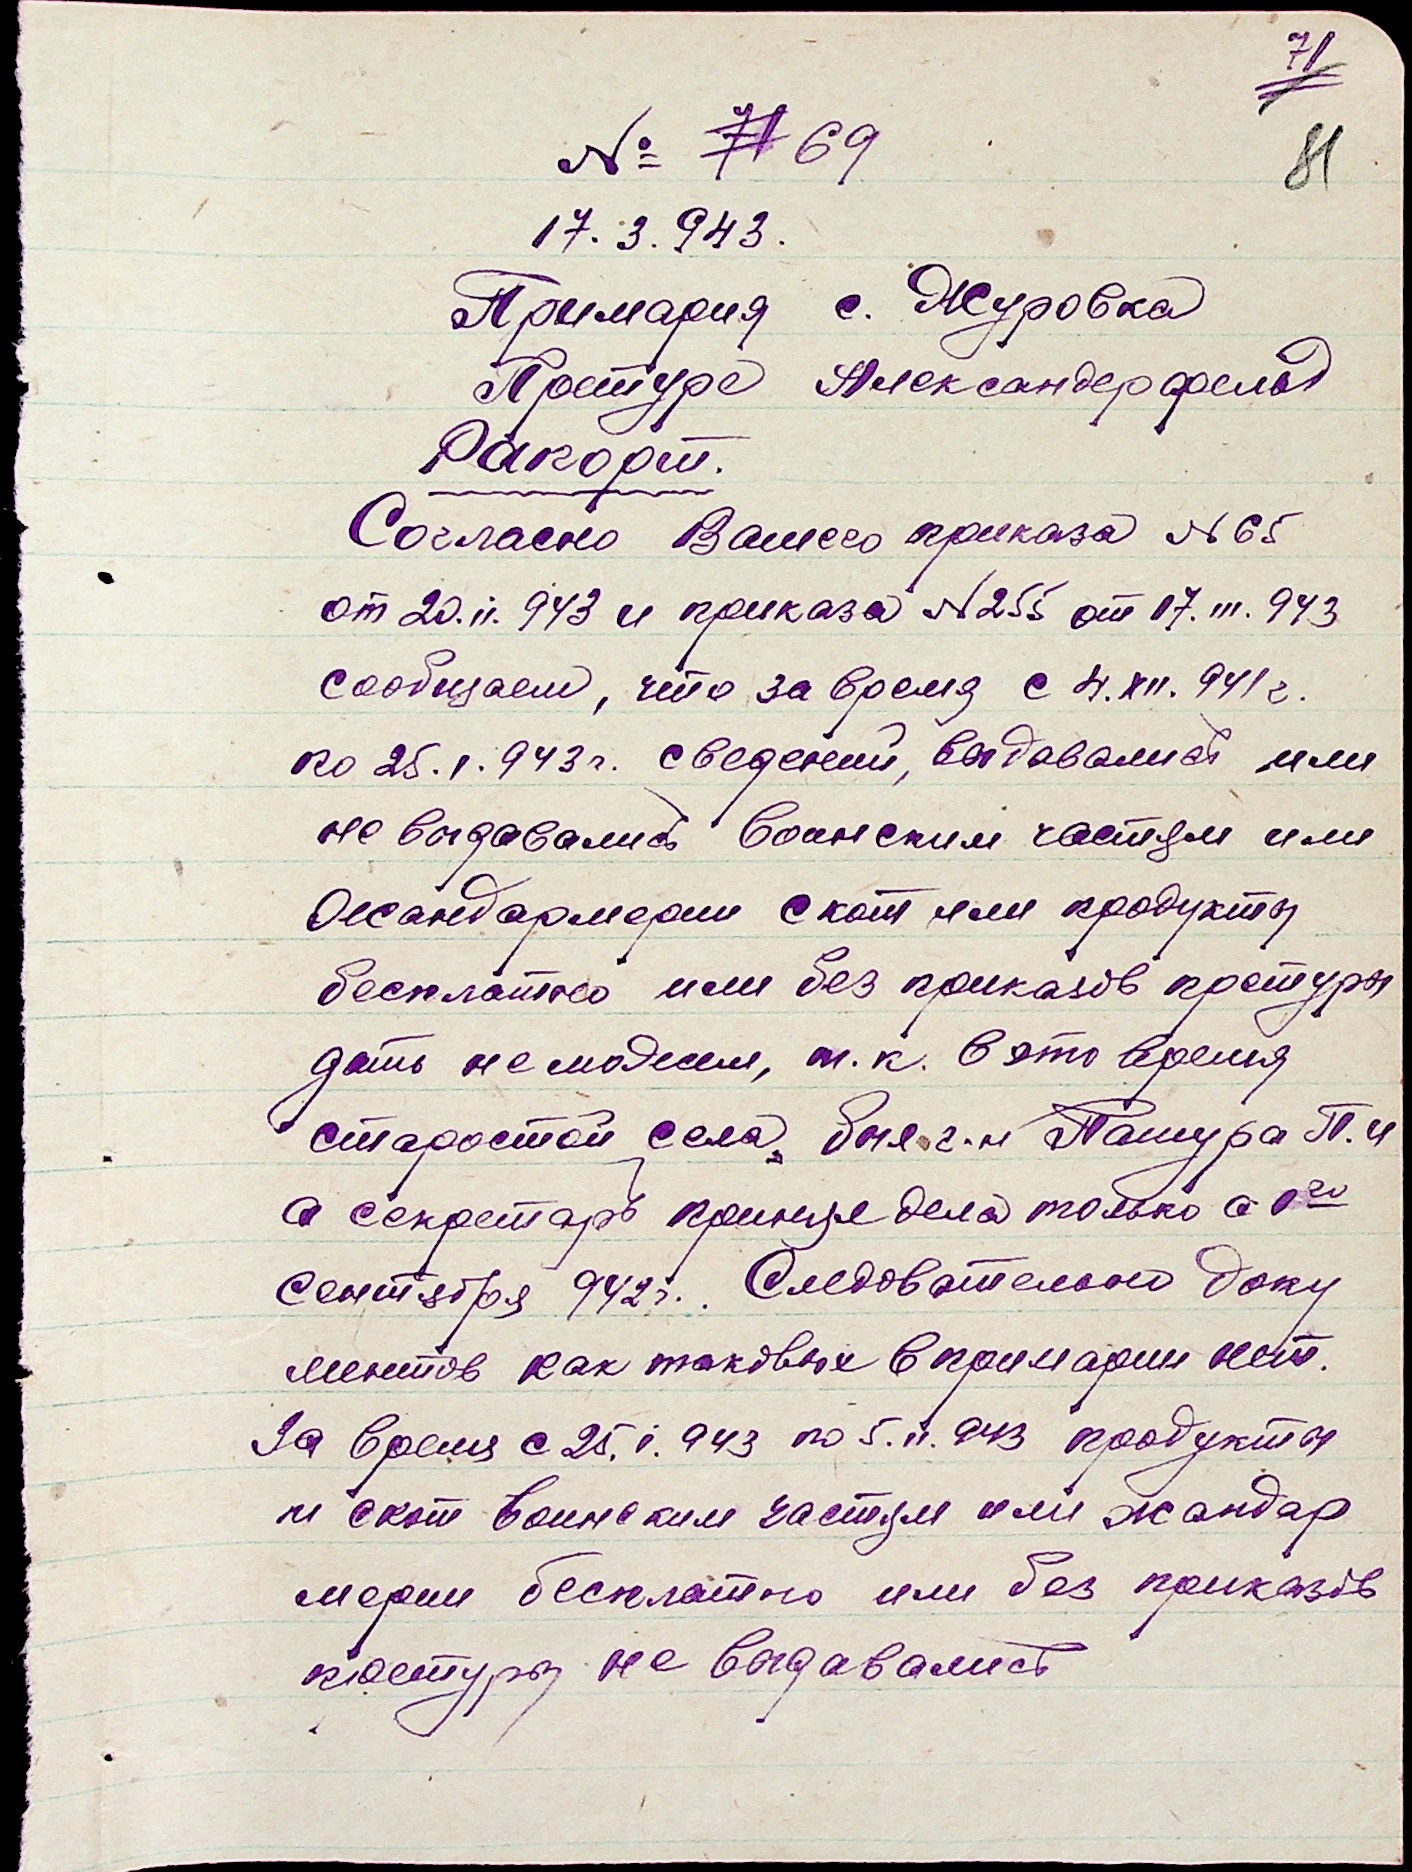 71
81
№ 71 69
17. 3. 943.
Примария с. Журовка
Претуре Александерфельд
Ракорт.
Согласно Вашего приказа N 65
от 20.II. 943 и приказа N 255 от 17.III. 943
сообщаем, что за время с 4.XII. 941 г.
по 25.I.943 г. сведений, выдавались или
не выдавались воинским частям или
жандармерии скот или продукты
бесплатно или без приказов претуры
дать не можем, т.к. в это время
старостой села был г-н Пашура П. И
а секретарь принял дела только с 1го
сентября 942 г. Следовательно доку
ментов как таковых в примарии нет.
За время с 25.I. 943 по 5.II. 943 продукты
и скот воинским частям или жандар
мерии бесплатно или без приказов
претуры не выдавались